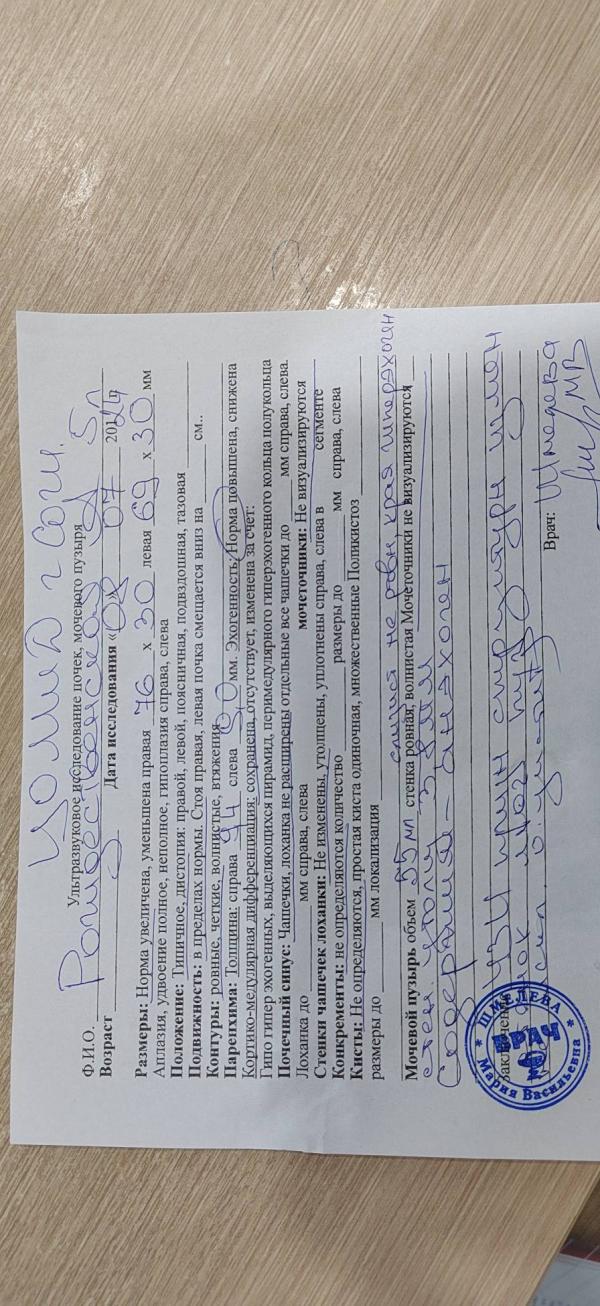 ЦОМИД г Сочи
Ультразвуковое исследование почек, мочевого пузыря
Ф.И.О. Рождественская
Возраст 5 л Дата исследования «08» 07 2024
Размеры: Норма увеличена, уменьшена правая 76 х 30 левая 69 х 30 мм
Аплазия, удвоение полное, неполное, гипоплазия справа, слева
Положение: Типичное, дистопия: правой, левой, поясничная, подвздошная, тазовая
Подвижность: в пределах нормы. Стоя правая, левая почка смещается вниз на см..
Контуры: ровные, четкие, волнистые, втяжения
Паренхима: Толщина: справа слева 9,0 мм. Эхогенность: Норма повышена, снижена
Кортико-медулярная дифференциация: сохранена, отсутствует, изменена за счет:
Гипо гипер эхогенных, выделяющихся пирамид, перимедулярного гиперэхогенного кольца полукольца
Почечный синус: Чашечки, лоханка не расширены отдельные все чашечки до мм справа, слева.
Лоханка до мм справа, слева мочеточники: Не визуализируются
Стенки чашечек лоханки: Не изменены, утолщены, уплотнены справа, слева в сегменте
Конкременты: не определяются количество размеры до мм справа, слева
Кисты: Не определяются, простая киста одиночная, множественные Поликистоз
размеры до мм локализация
слизист не ровн, края гиперэхоген
Мочевой пузырь объем 55 мл стенка ровная, волнистая Мочеточники не визуализируются
стен. утолщ 3,8 мм
Содержимое – анэхоген
УЗИ призн структурн измен
моч пуз
Врач: Шмелева МВ
ШМЕЛЕВА
ВРАЧ
Мария Васильевна